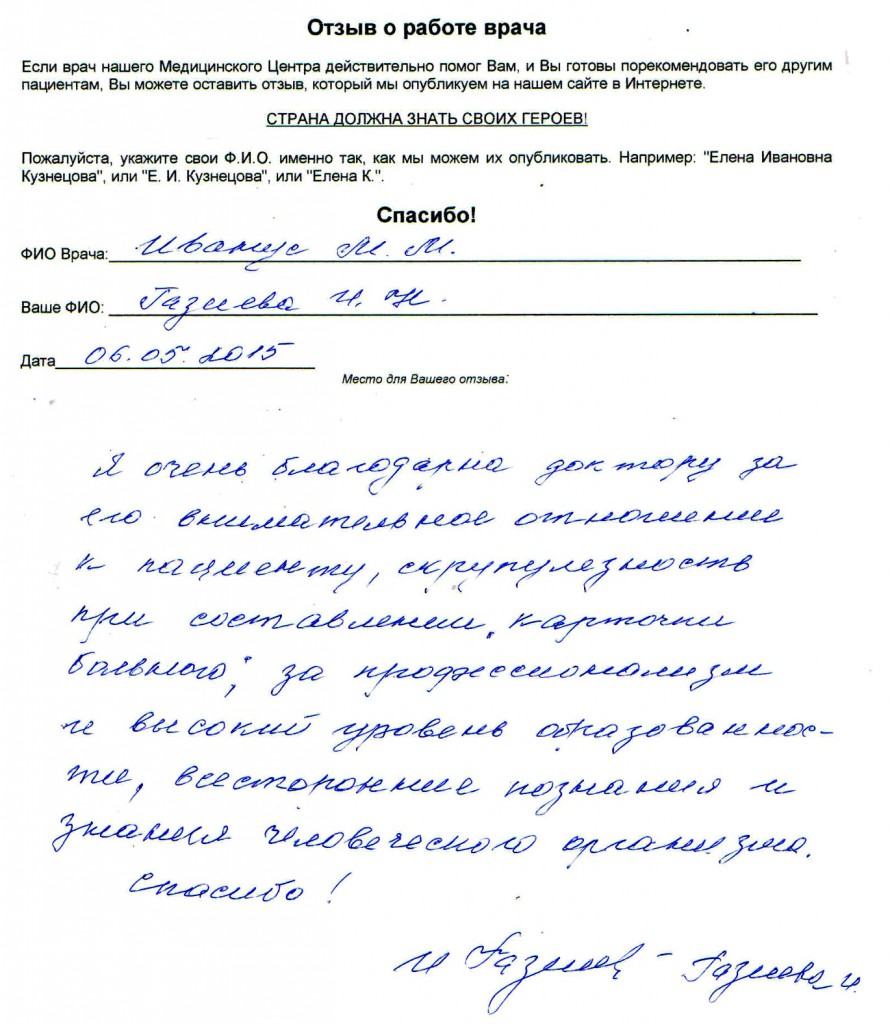 Отзыв о работе врача
Если врач нашего Медицинского Центра действительно помог Вам, и Вы готовы порекомендовать его другим
пациентам, Вы можете оставить отзыв, который мы опубликуем на нашем сайте в Интернете.
СТРАНА ДОЛЖНА ЗНАТЬ СВОИХ ГЕРОЕВ!
Пожалуйста, укажите свои Ф.И.О. именно так, как мы можем их опубликовать. Например: "Елена Ивановна
Кузнецова", или "Е. И. Кузнецова", или "Елена К.".
Спасибо!
ФИО Врача: Иванус М. М.
Ваше ФИО: Газиева И. Н.
Дата 06.05.2015
Место для Вашего отзыва:
Я очень благодарна доктору за
его внимательное отношение
к пациенту, скрупулезность
при составлении "карточки
больного", за профессионализм
и высокий уровень образованнос-
ти, всесторонние познания и
знания человеческого организма.
Спасибо!
И Газиев - Газиева И.